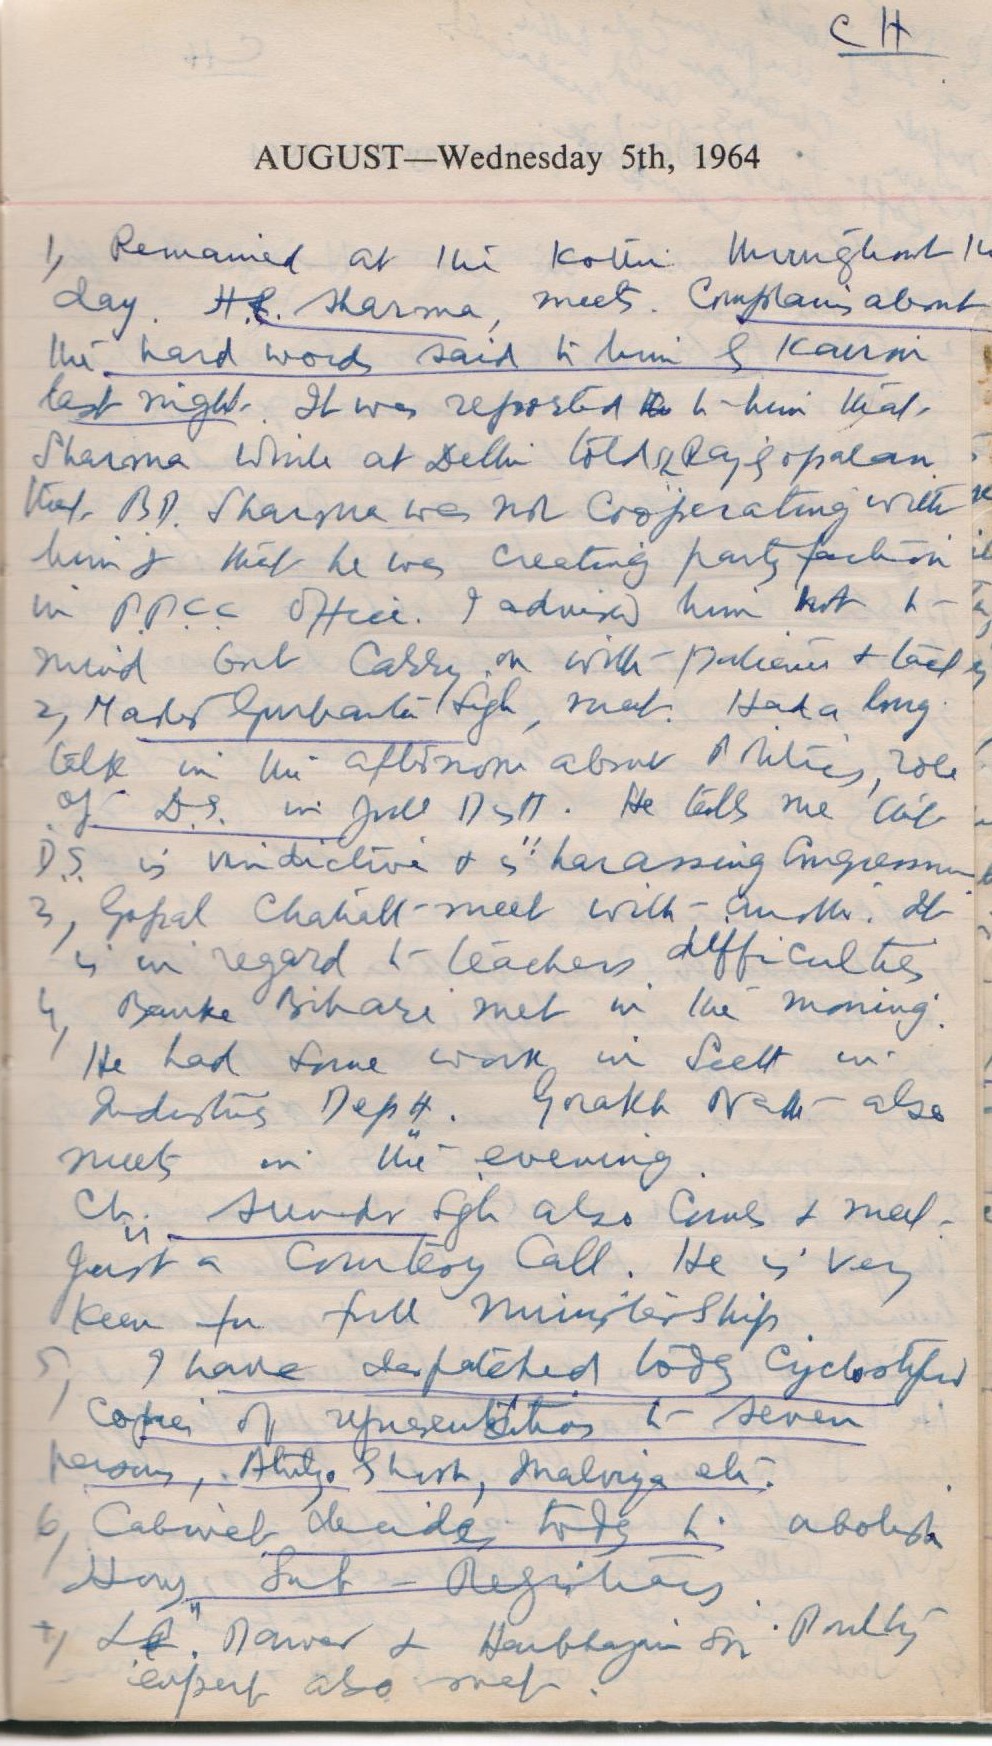 CH
AUGUST—Wednesday 5th, 1964
1, Remained at the Kothi throughout the
day. H.R. Sharma, meets. Complains about
the hard words said to him by Kairon
last night. It was reported to him that
Sharma while at Delhi told Rajgopalan
that B.D. Sharma was not Coöperating with
him & that he was creating party faction
in P.P.C.C office. I advised him not to
mind but Carry on with patience & tact
2, Master Gurbanta Sgh, meet. Had a long
talk in the afternoon about Politics, role
of D.S. in Jull Distt. He tells me that
D.S. is vindictive & is harassing Congressmen
3, Gopal Chahatt meet with another. It
is in regard to teachers difficulties
4, Banke Bihari met in the morning.
He had some work in Sectt in
Industries Deptt. Gorakh Nath also
meets in the evening.
Ch. Sunder Sgh also Comes & meet.
Just a Courtesy Call. He is very
keen for full Ministership
5, I have despatched today Cyclostyled
Copies of representations to seven
persons, Shish, Malviya etc.
6, Cabinet decides today to abolish
Hony Sub - Registrars
7, & Harbhajan Poultry
expert also met.